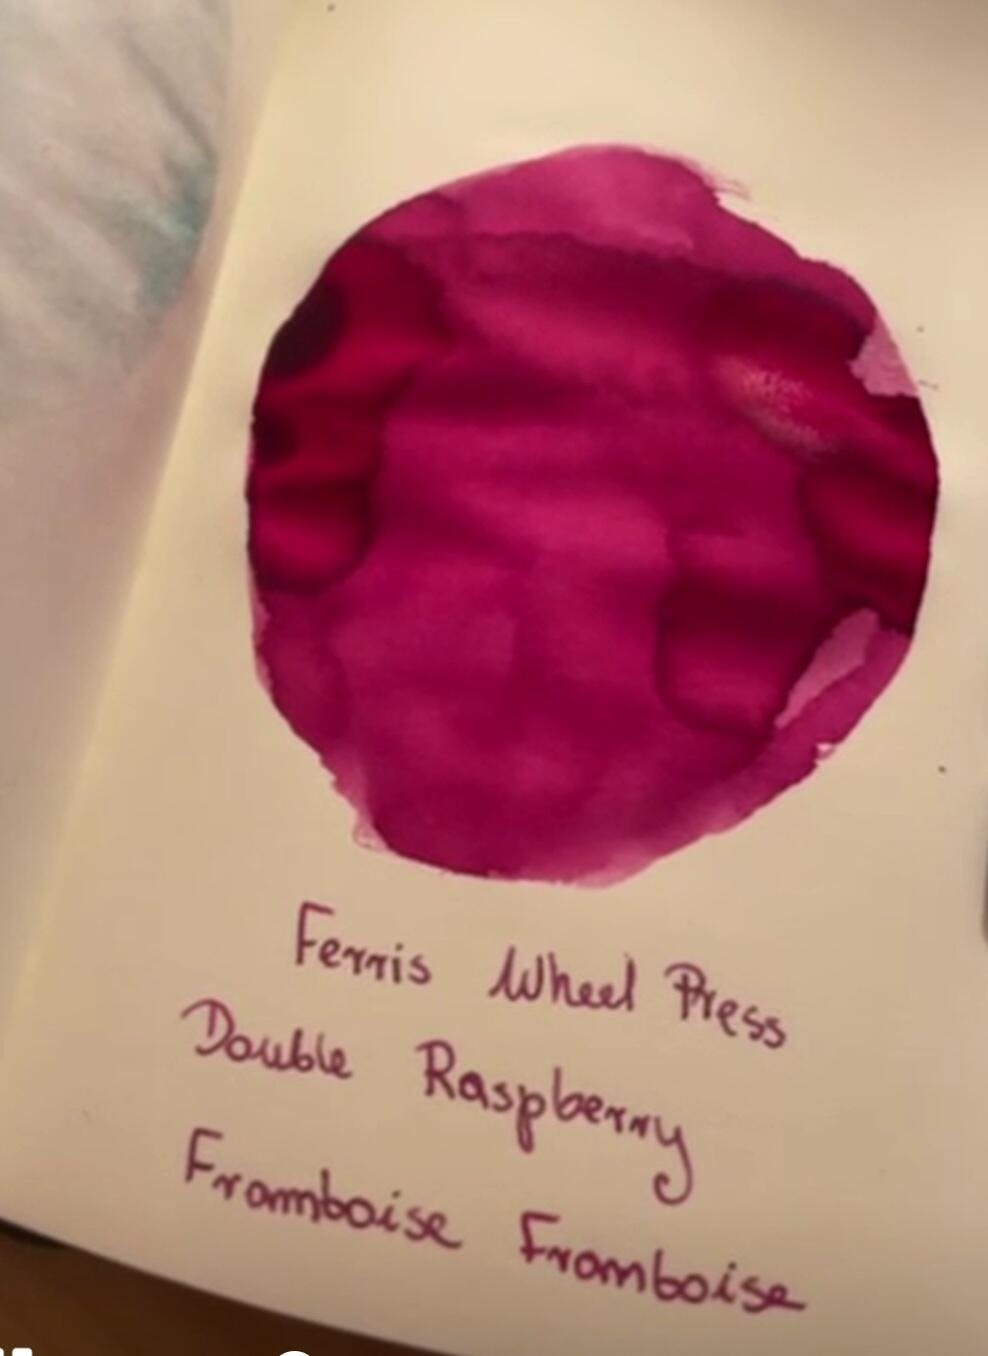 Ferris Wheel Press
Double Raspberry
Framboise Framboise